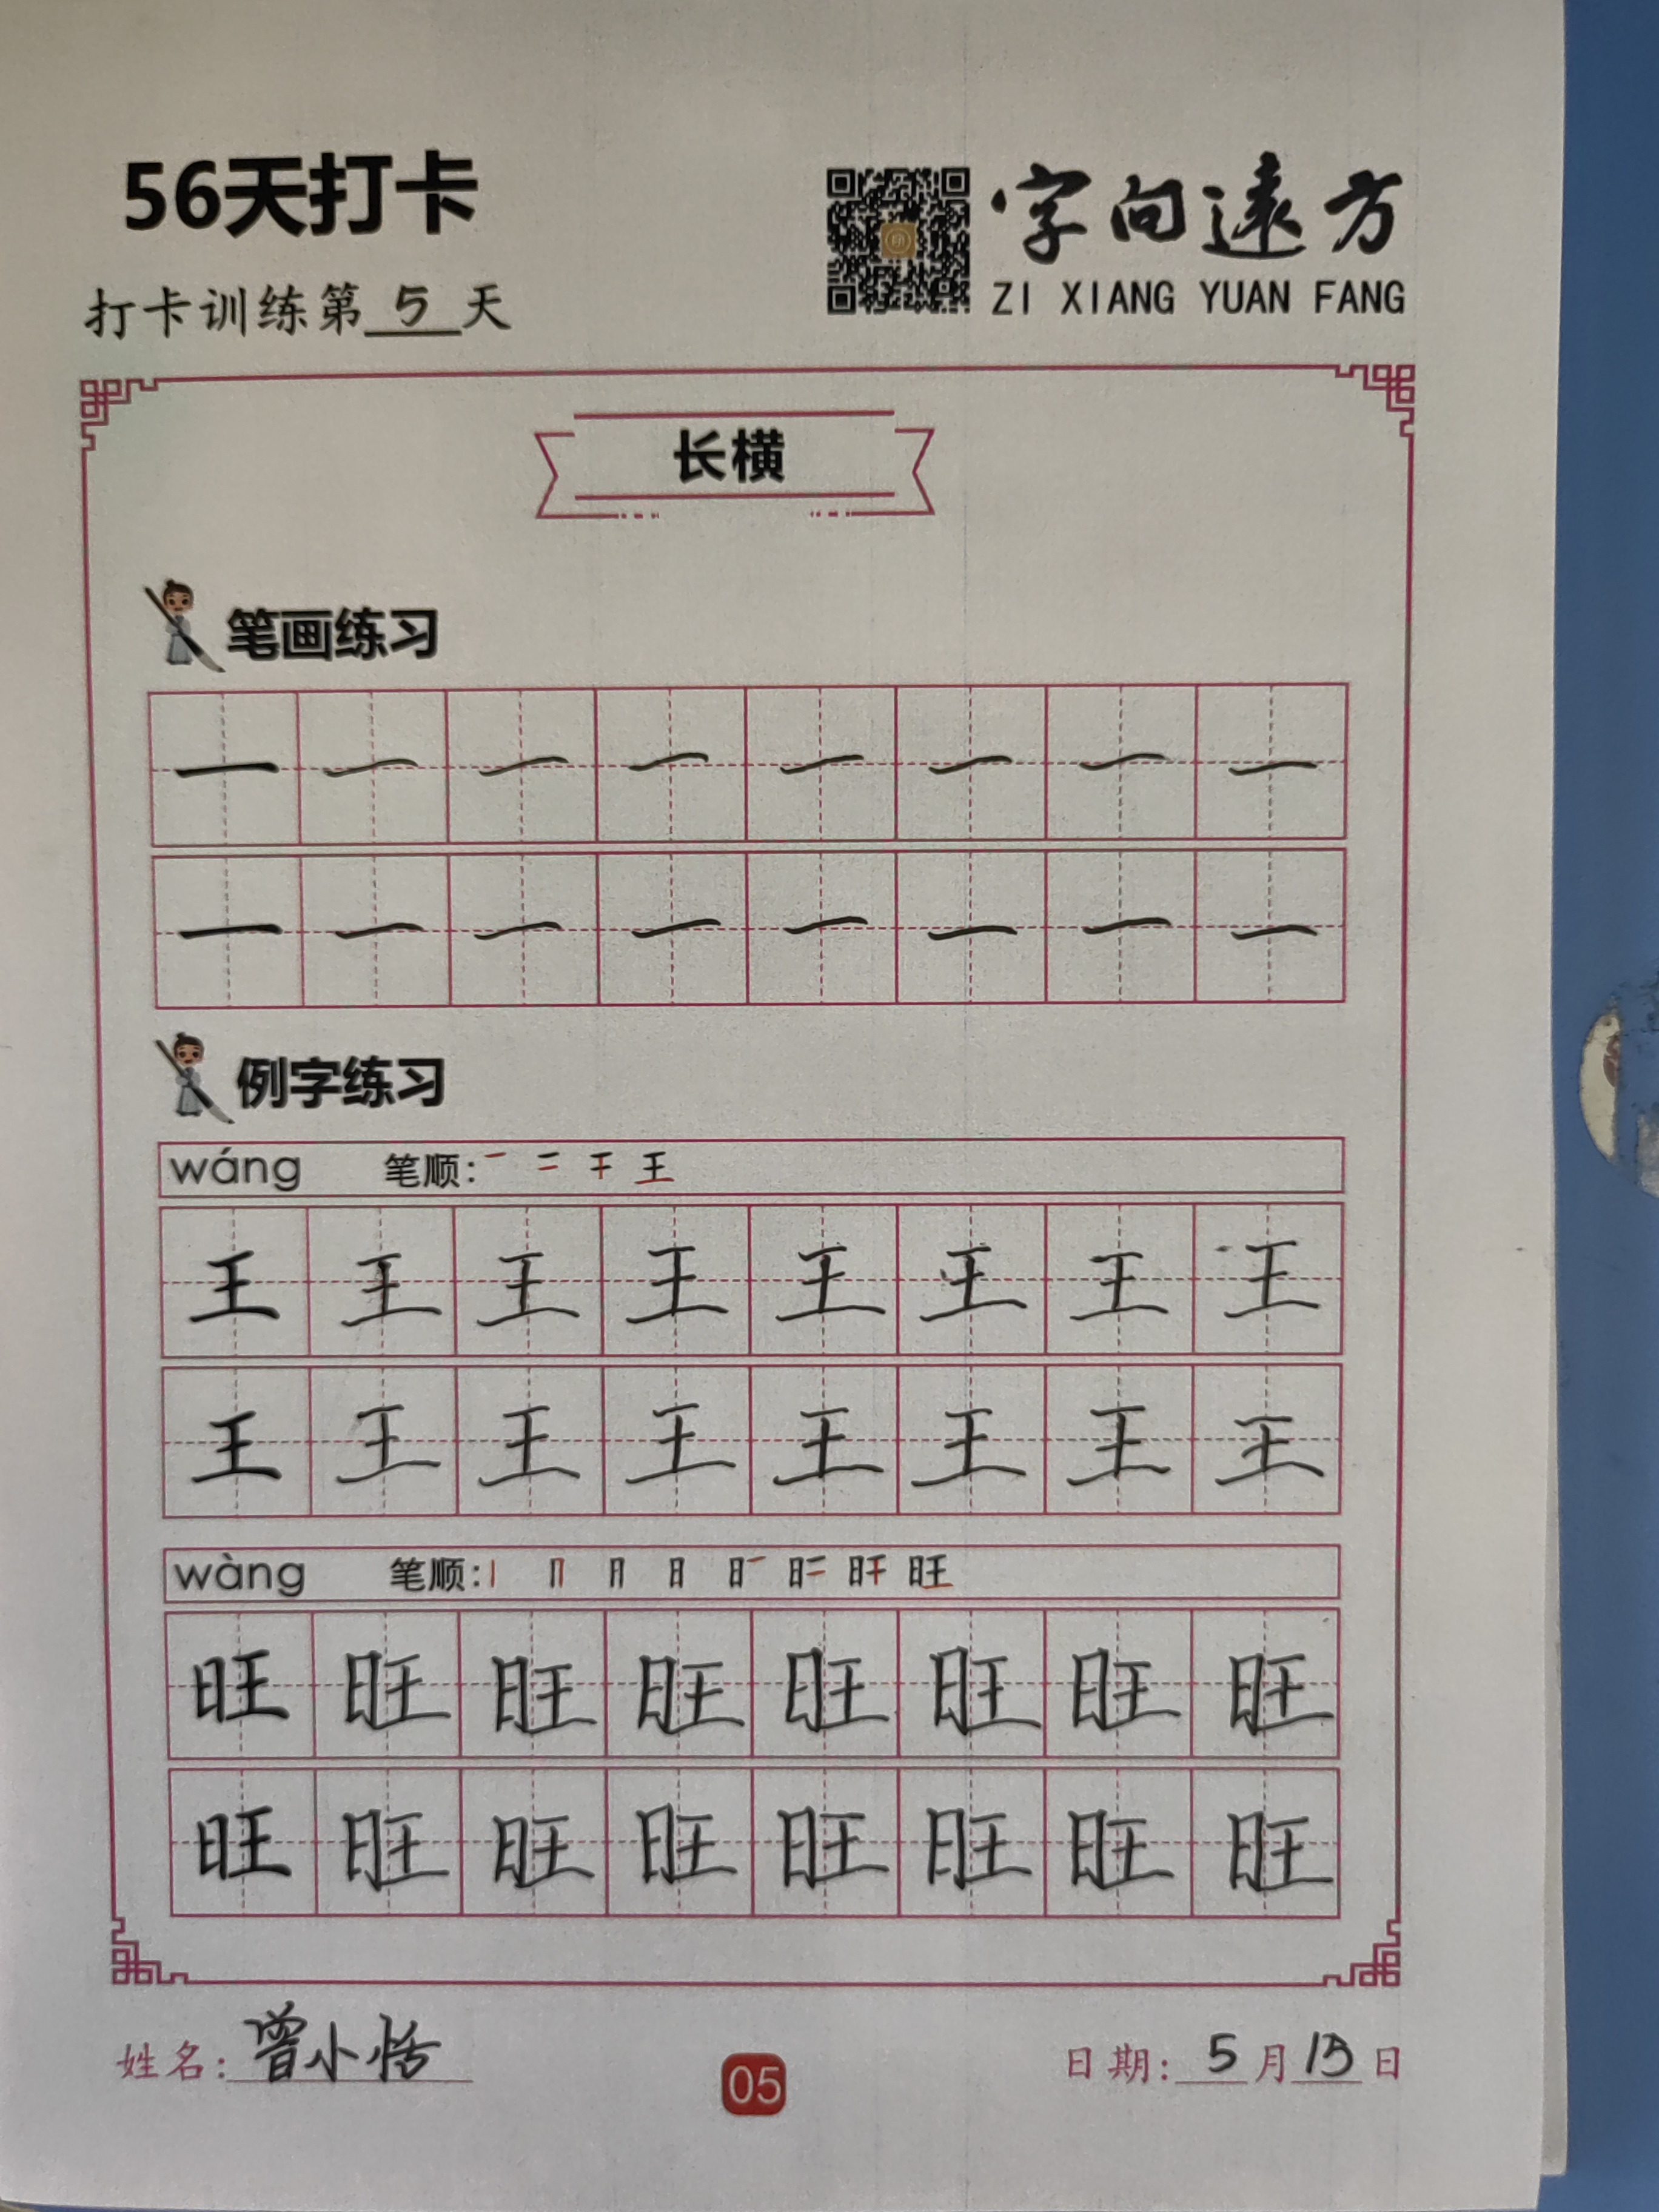 56天打卡
字向遠方
打卡训练第5天
ZI XIANG YUAN FANG
长横
笔画练习
一 一 一 一 一 一 一 一
一 一 一 一 一 一 一 一
例字练习
wáng 笔顺: 一 二 干 王
王 王 王 王 王 王 王 王
王 王 王 王 王 王 王 王
wàng 笔顺: 丨 冂 月 日 旺
旺 旺 旺 旺 旺 旺 旺 旺
旺 旺 旺 旺 旺 旺 旺 旺
姓名: 曾小恬
05
日期: 5月15日